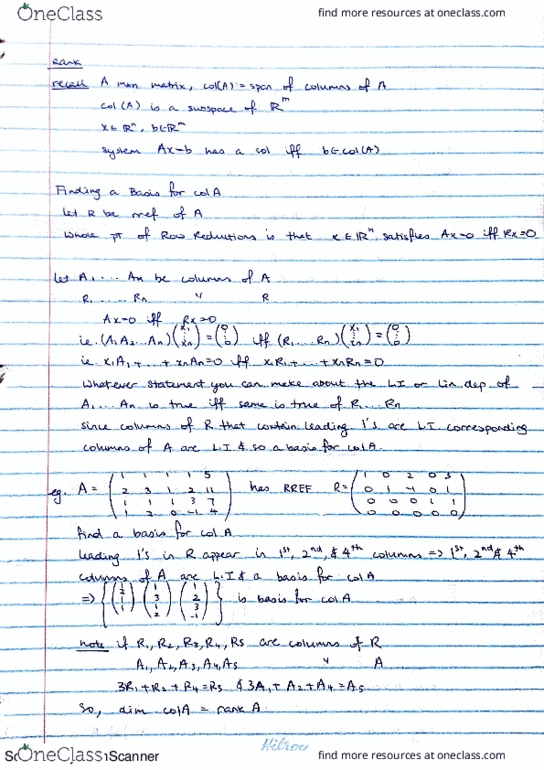 OneClass find more resources at oneclass.com
Rank
recall A mxn matrix, col(A) = span of columns of A
col(A) is a subspace of R^m
x∈R^n, b∈R^m
system Ax=b has a sol iff b∈col(A)
Finding a Basis for colA
let R be rref of A
Whole pt of Row Reductions is that x∈R^n satisfies Ax=0 iff Rx=0
let A1, ... An be columns of A
R1 ... Rn " R
Ax=0 iff Rx=0
i.e. (A1 A2 ... An)(x1 ⋮ xn) = (0 ⋮ 0) iff (R1 ... Rn)(x1 ⋮ xn) = (0 ⋮ 0)
i.e. x1A1 + ... + xnAn = 0 iff x1R1 + ... + xnRn = 0
Whatever statement you can make about the LI or lin dep of
A1 ... An is true iff same is true of R1 ... Rn
since columns of R that contain leading 1's are L.I. corresponding
columns of A are L.I & so a basis for colA.
eg. A = (1 1 1 1 5 / 2 3 1 2 11 / 1 1 1 3 7 / 1 2 0 -1 4) has RREF R = (1 0 2 0 3 / 0 1 -1 0 1 / 0 0 0 1 1 / 0 0 0 0 0)
find a basis for col A
leading 1's in R appear in 1st, 2nd, & 4th columns => 1st, 2nd & 4th
columns of A are L.I & a basis for colA
=> {(1 2 1 1) (1 3 1 2) (1 2 3 -1)} is basis for colA
note if R1, R2, R3, R4, R5 are columns of R
A1, A2, A3, A4, A5 " A
3R1 + R2 + R4 = R5 & 3A1 + A2 + A4 = A5
So, dim colA = rank A
OneClass Scanner find more resources at oneclass.com